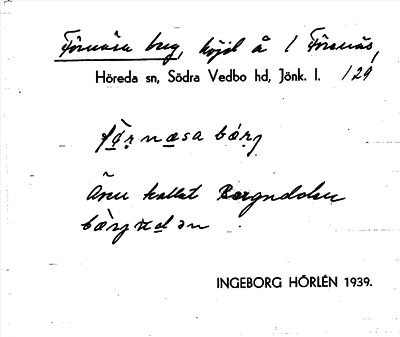 Förnäsa berg, höjd å 1 Förnäs,
Höreda sn, Södra Vedbo hd, Jönk. l. 129
fö̀rnæsa bærj
Även kallat Bergudden
bærj
INGEBORG HÖRLÉN 1939.